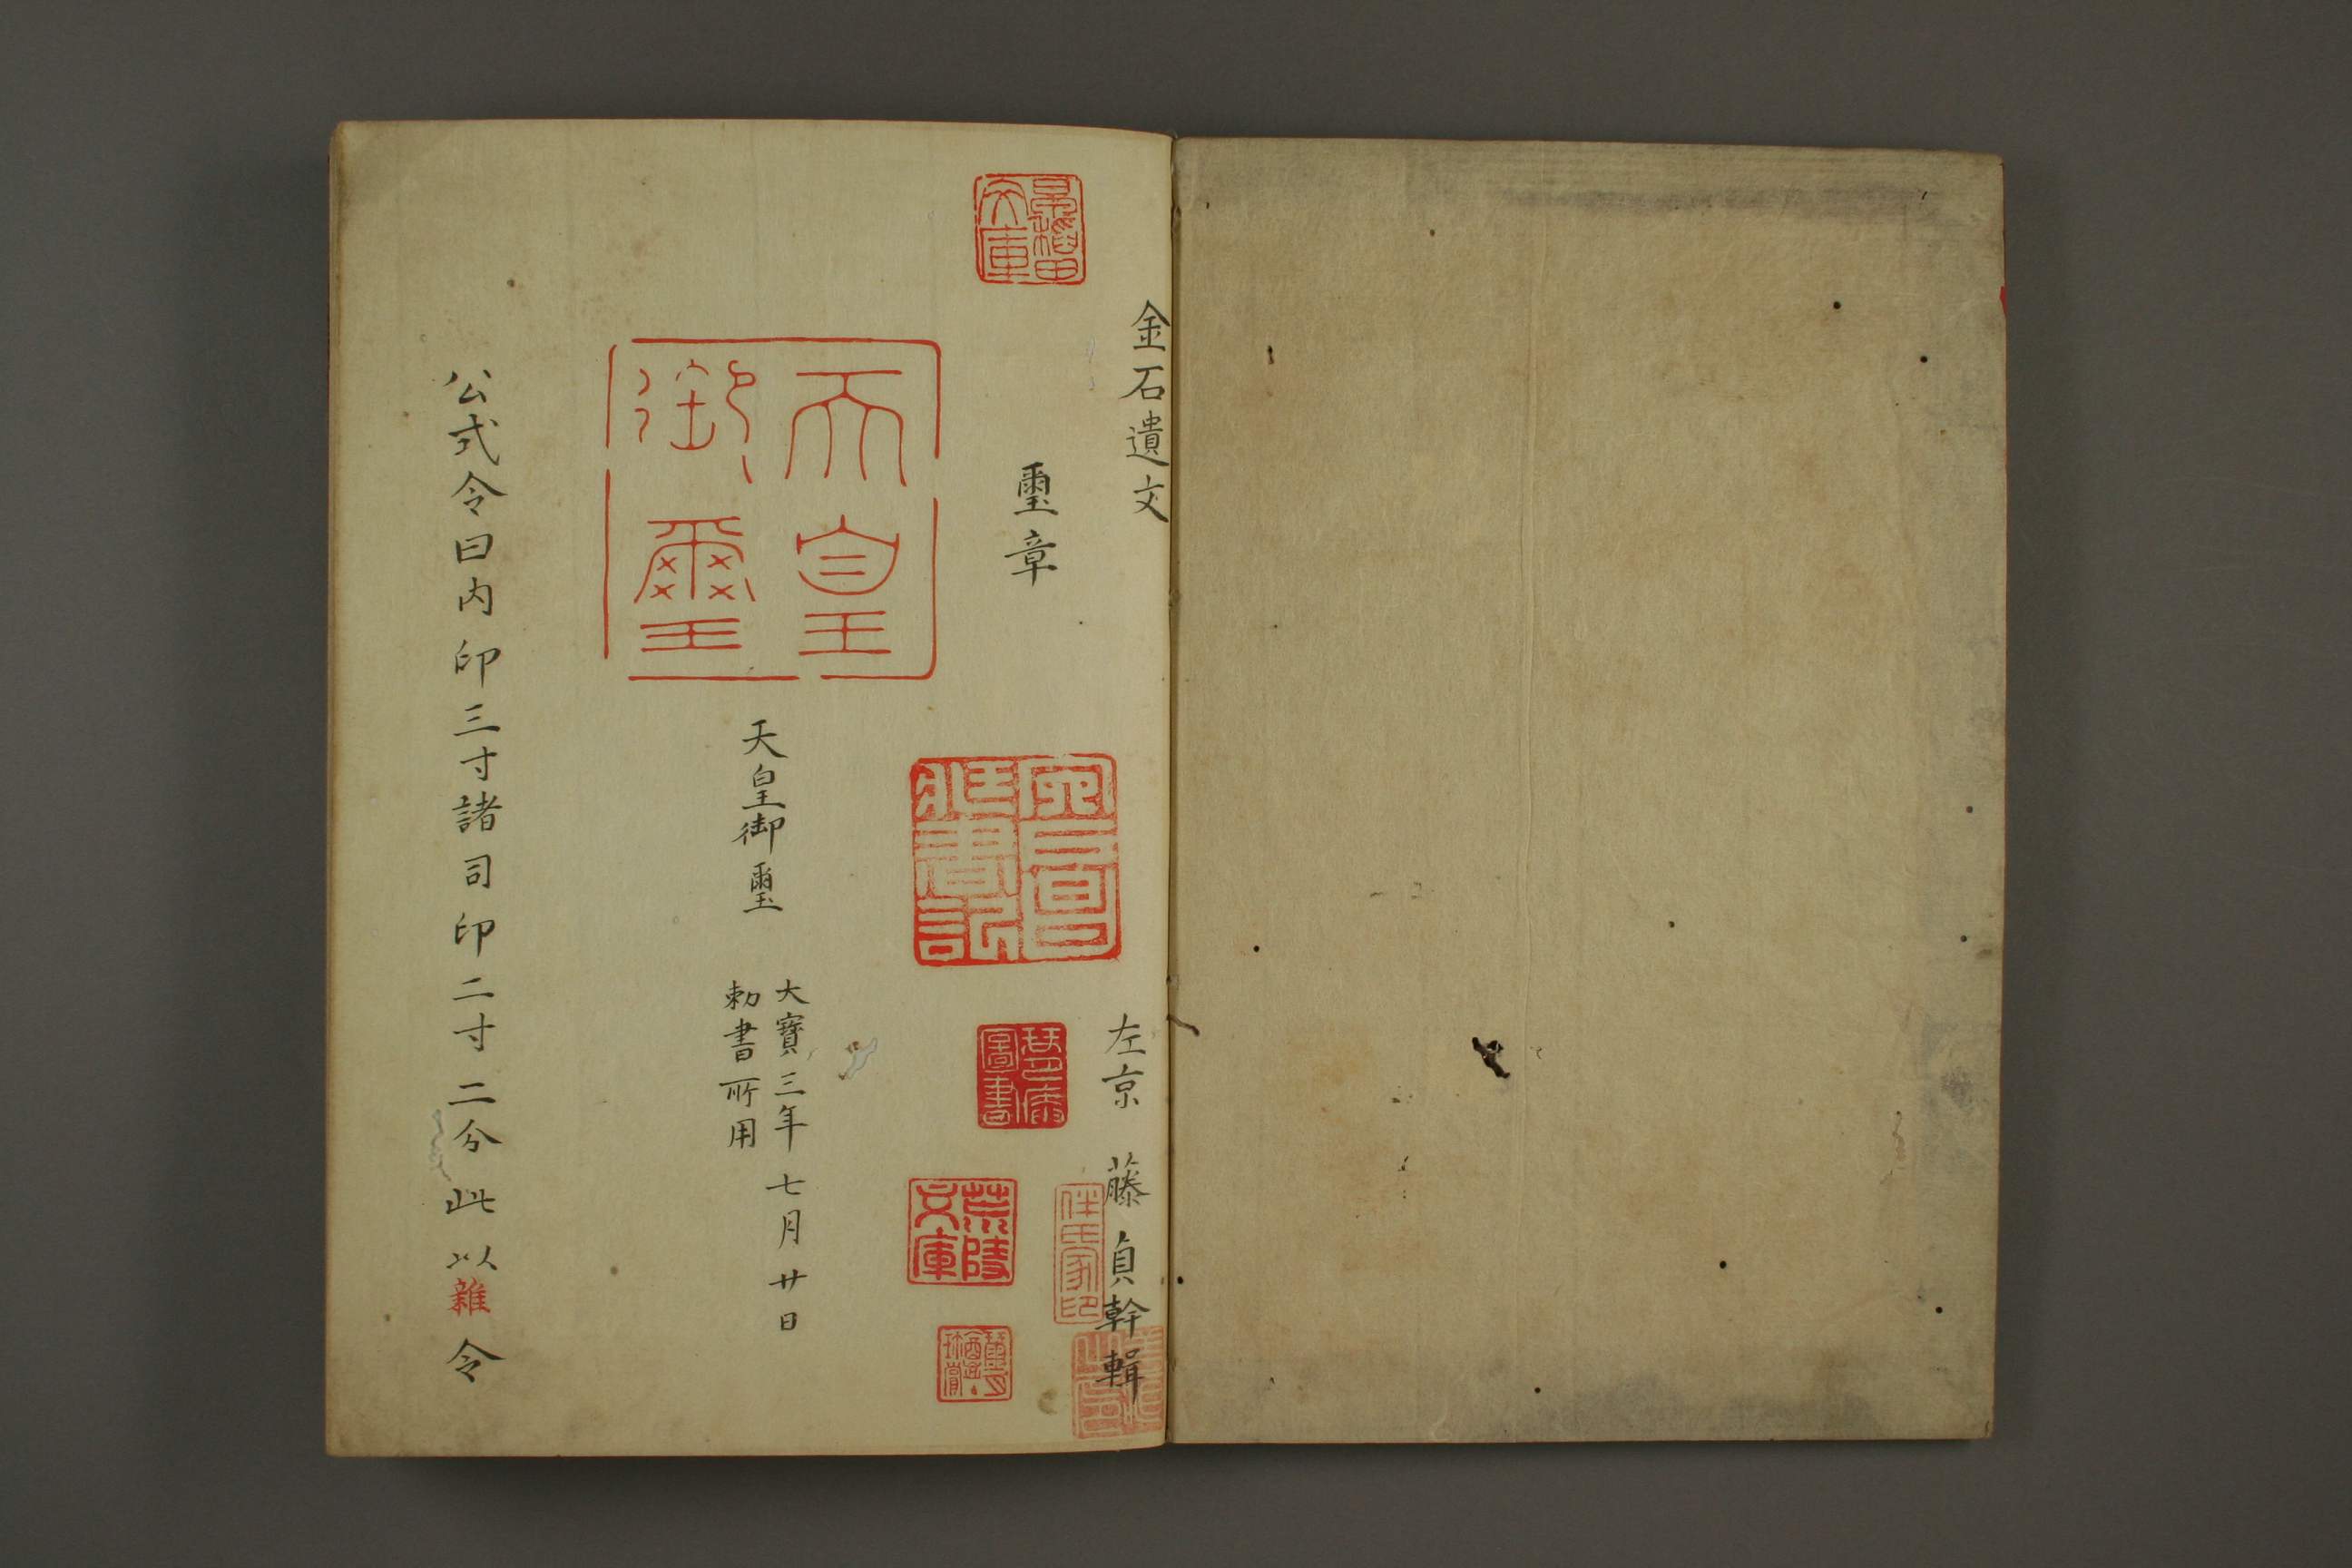 金石遺文
左京 藤貞幹輯
璽章
宍戸昌
蔵書記
荒陵
文庫
伴氏家印
天皇
御璽
天皇御璽
大寶三年七月廿日
勅書所用
公式令曰内印三寸諸司印二寸二分此以雜令